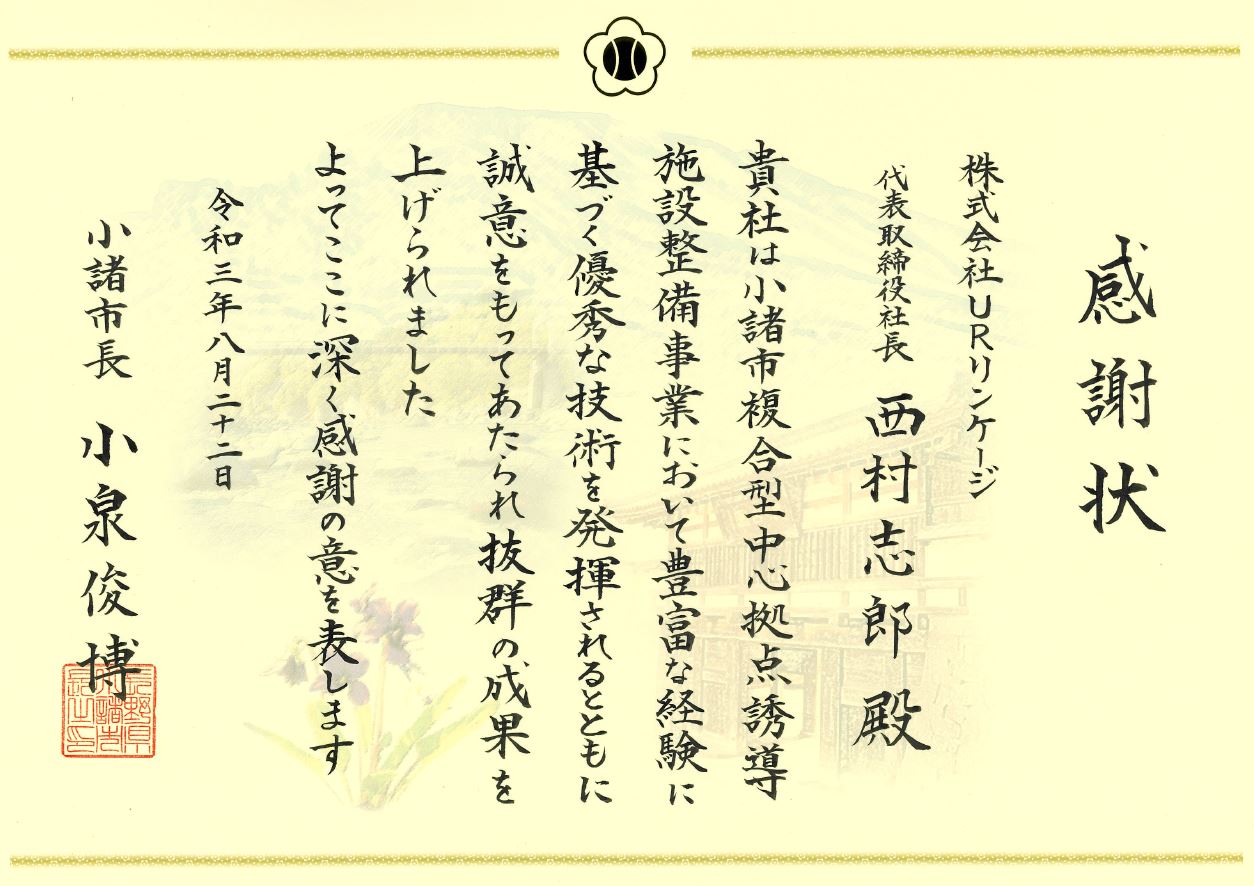 感謝状
株式会社URリンケージ
代表取締役社長 西村志郎 殿
貴社は小諸市複合型中心拠点誘導
施設整備事業において豊富な経験に
基づく優秀な技術を発揮されるとともに
誠意をもってあたられ抜群の成果を
上げられました
よってここに深く感謝の意を表します
令和三年八月二十二日
小諸市長 小泉俊博
長野県
小諸市
長之印